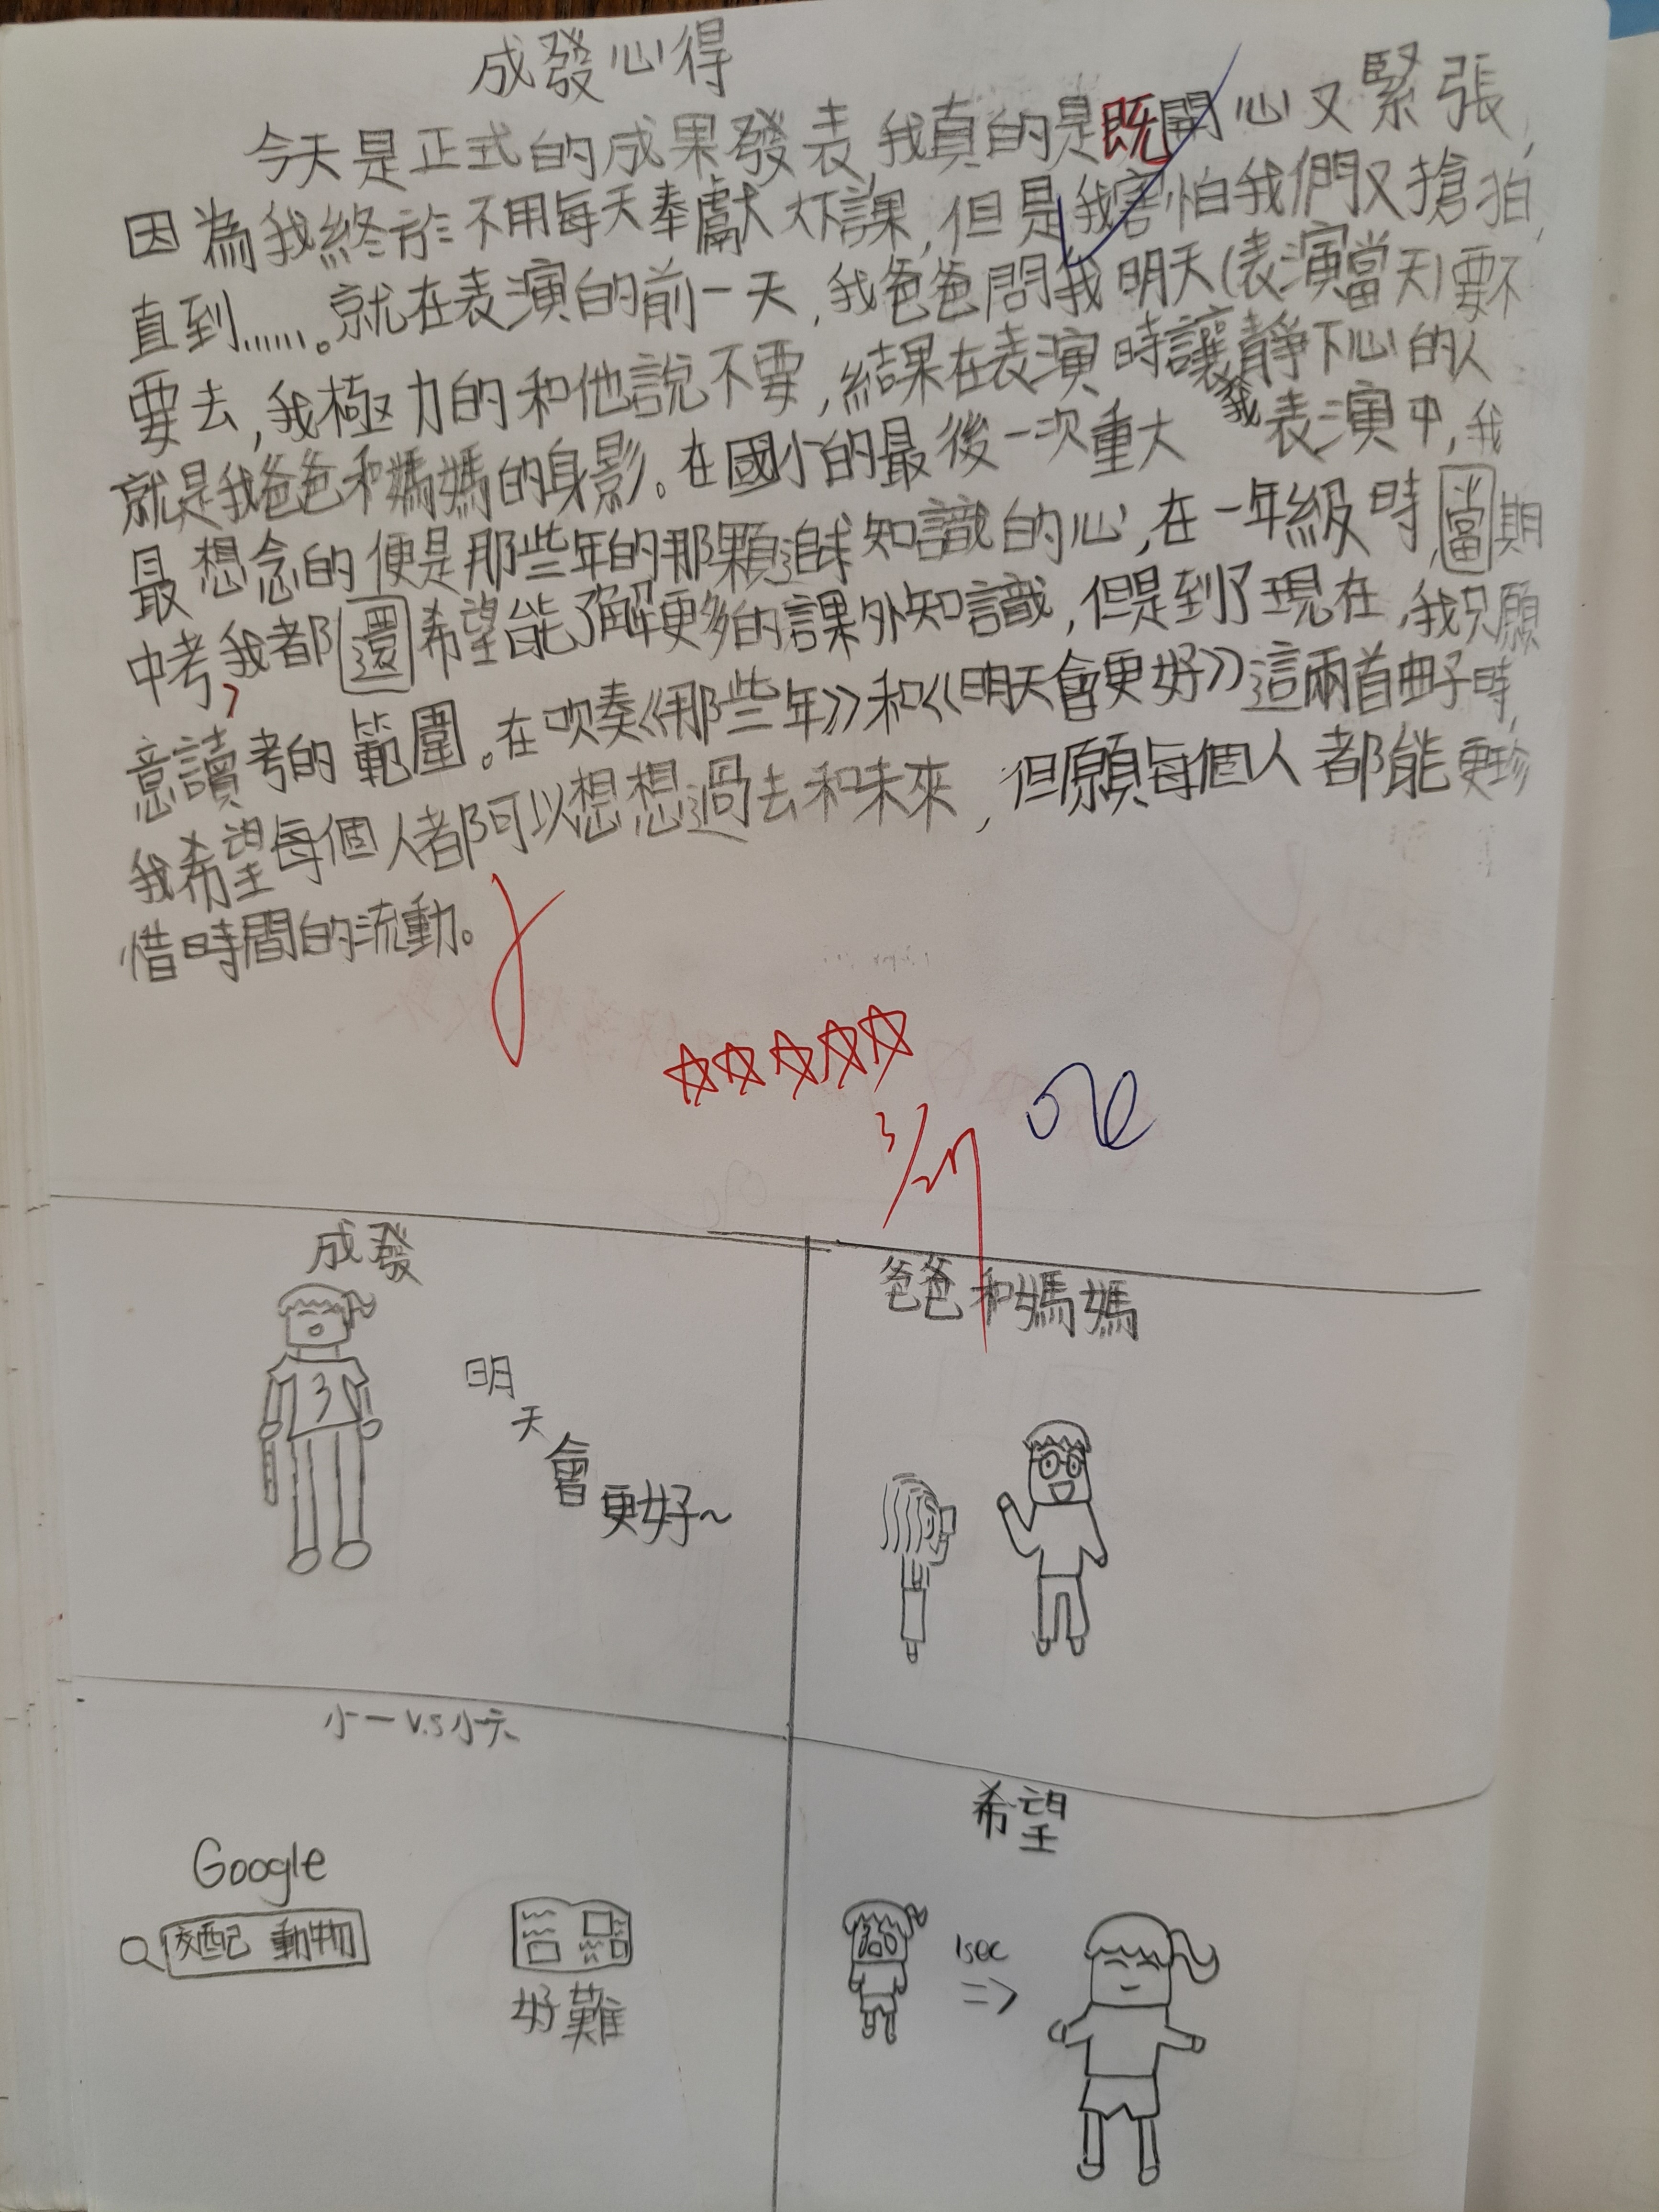 成發心得
今天是正式的成果發表,我真的是既開心又緊張,
因為我終於不用每天奉獻下課,但是我害怕我們又搶拍,
直到......。就在表演的前一天,我爸爸問我明天(表演當天)要不
要去,我極力的和他說不要,結果在表演時讓我靜下心的人
就是我爸爸和媽媽的身影。在國小的最後一次重大表演中,我
最想念的便是那些年的那顆追求知識的心,在一年級時,當期
中考,我都還希望能了解更多的課外知識,但是到了現在,我只願
意讀考的範圍。在吹奏《那些年》和《明天會更好》這兩首曲子時,
我希望每個人都可以想想過去和未來,但願每個人都能更珍
惜時間的流動。
3/27
成發
明天會更好~
爸爸和媽媽
3
小一V.S小六
Google
交配 動物
好難
希望
1sec
=>